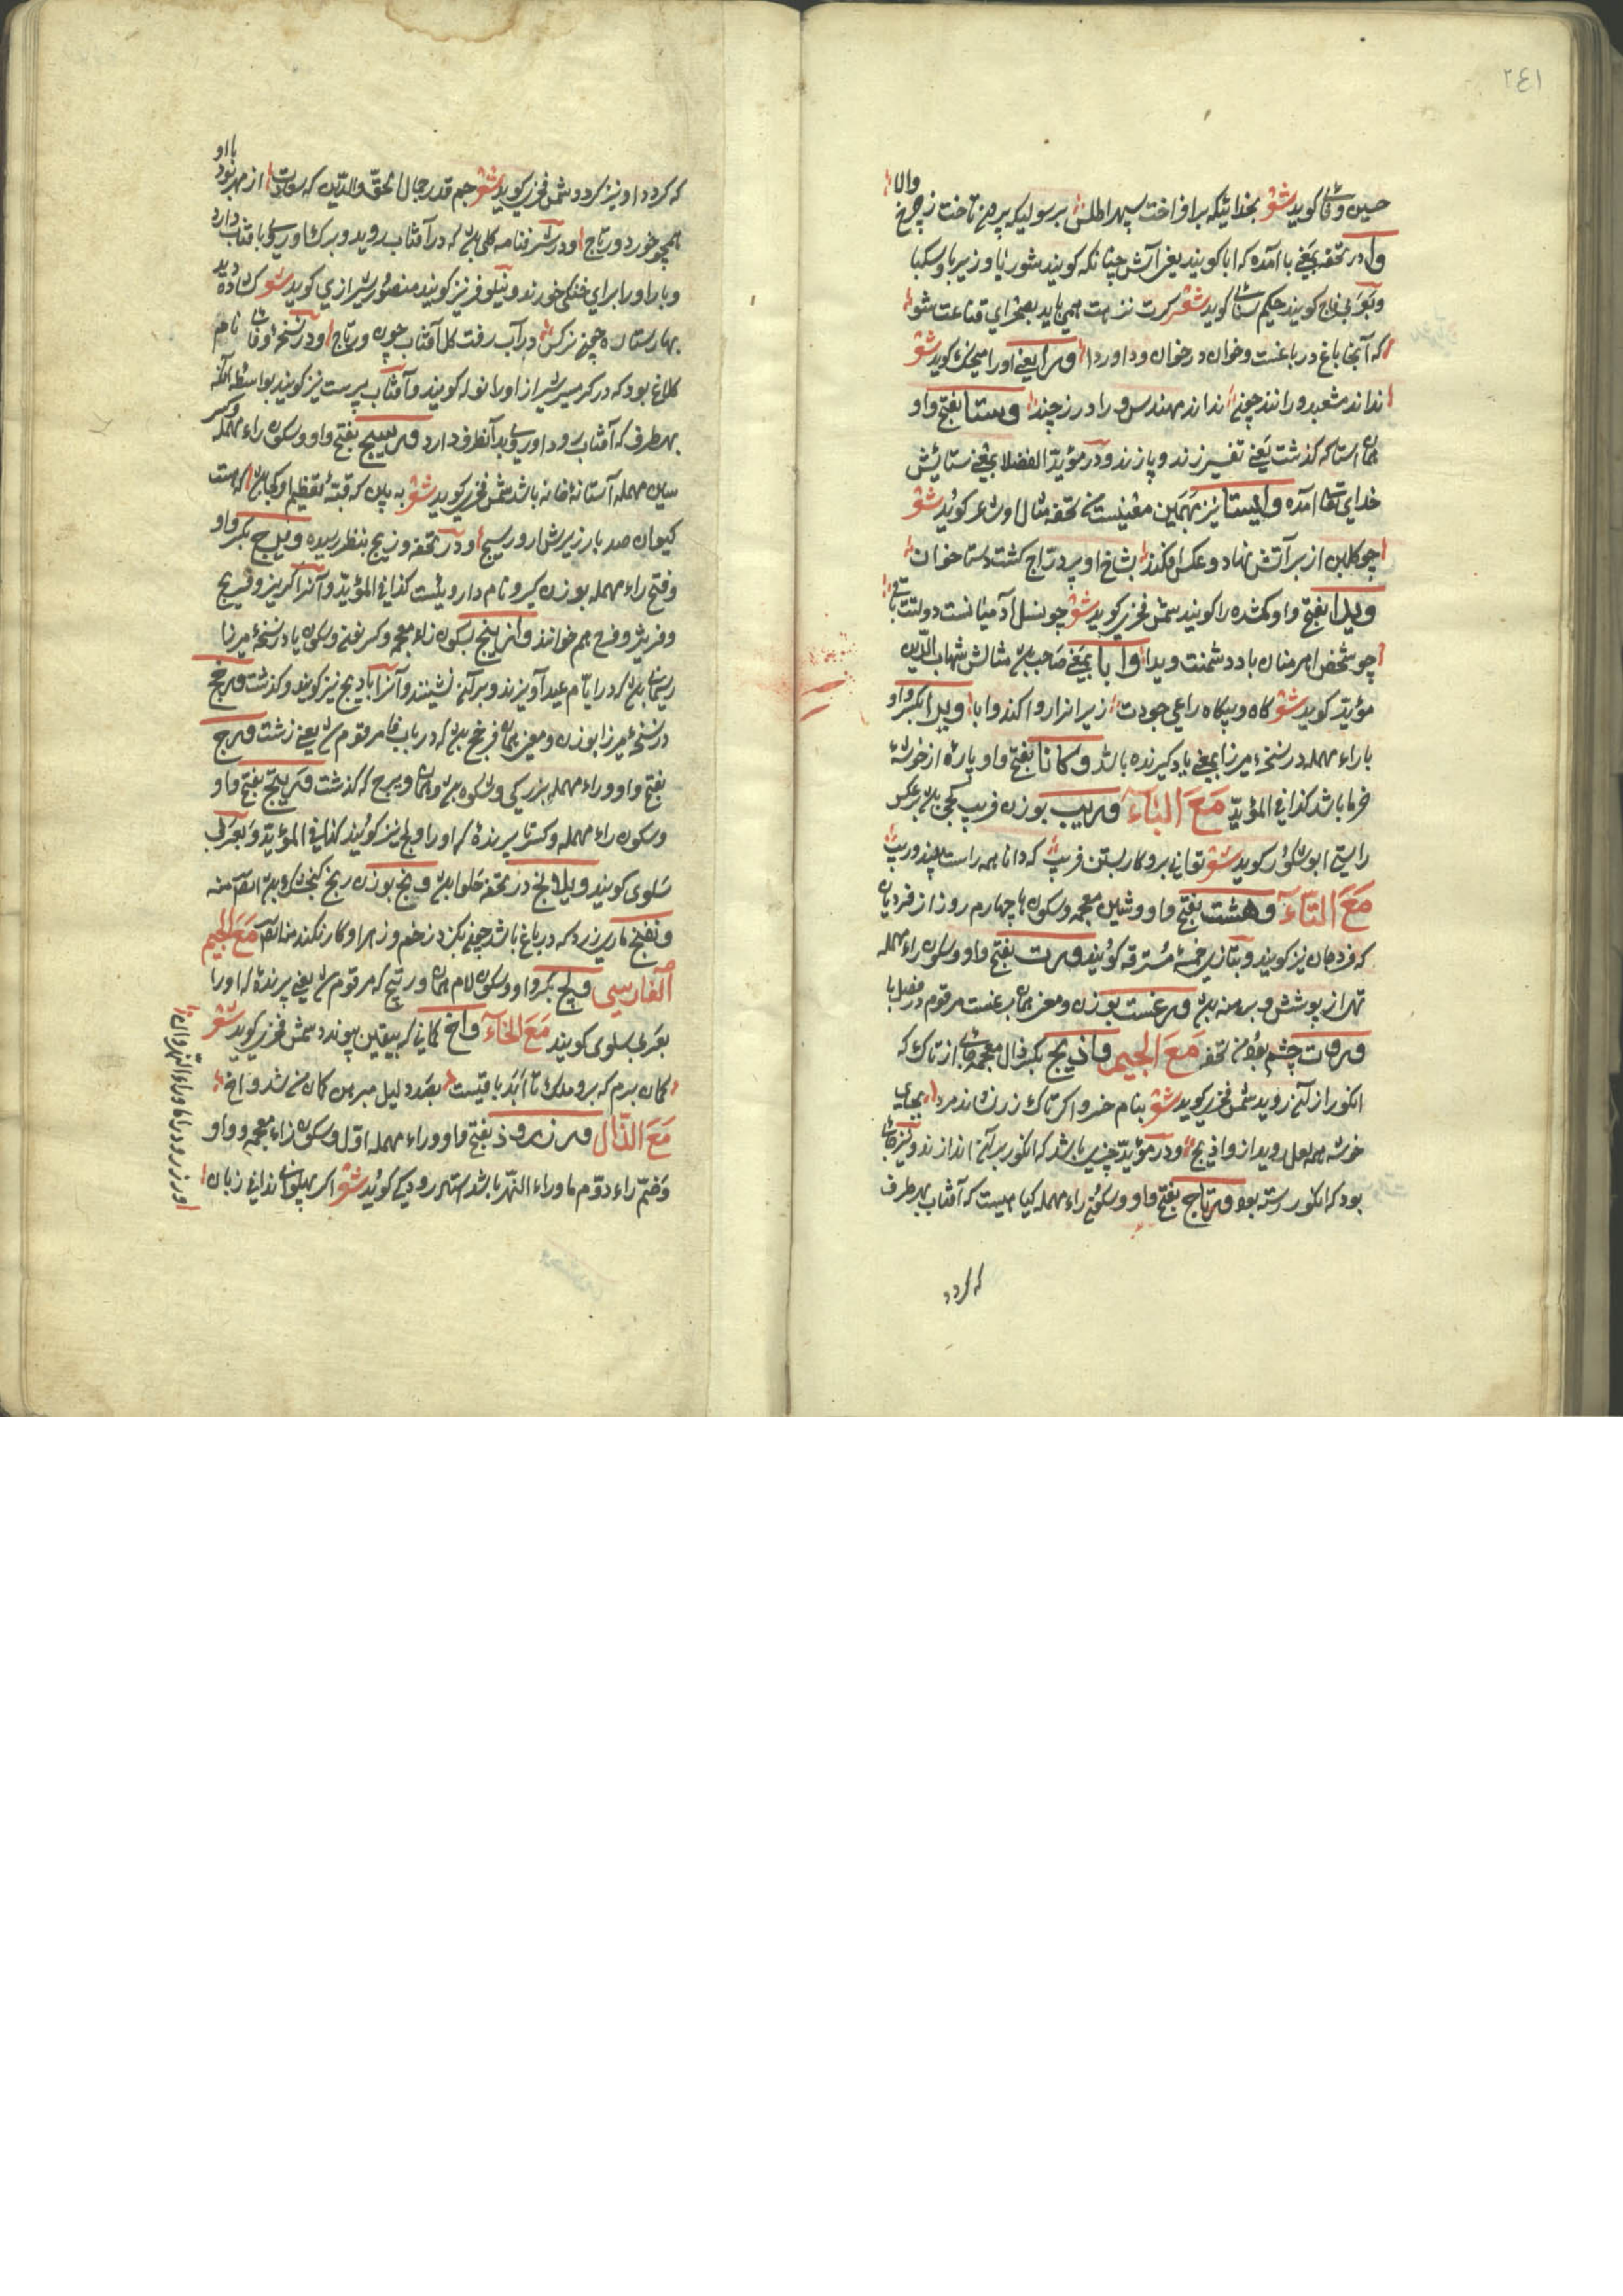 ٢٤١
والا
حسین وفائی گوید شعر بخدائیکه برافراخت سپهر اطلس برسولیکه برون تاخت ز چرخ
وا در تحفه بمعنی با آمده که ابا گویند یعنی آش چنانکه گویند شوروا و زیروا و سکبا
کویند حکیم سنائی گوید شعر کرت نزهت همی باید بصحرای قناعت شو
که آنجا باغ در باغست و خوان در خوان و وا در وا ورا یعنی اورا گوید شعر
نداند مشعبد ورا بند چون نداند مهندس ورا درز چند وستا بفتح واو
همان استا که گذشت یعنی تفسیر زند و پازند و در مؤید الفضلا بمعنی ستایش
خدای تعالی آمده وایستا نیز بهمین معنیست تحفه مثال اول شاعر گوید شعر
چو گلبن از بر آتش نهاد و عکس افکند بشاخ او بر دراج گشت وستا خوان
ویدا بفتح واو گمشده را گویند شمس فخری گوید شعر چو نسل آدمیانست دولتت باقی
چو شخص اهرمنان باد دشمنت ویدا وابا بمعنی صاحب مثالش شهاب الدین
مؤید گوید شعر گاه و بیگاه راعی جودت زیرا نزا روا کند وابا ویرا بکسر واو
با راء مهمله در نسخه میرزا بمعنی یاد گیرنده باشد وکانا بفتح واو پاره از خوشه
خرما باشد کذا فی المؤید مع الباء وریب بوزن فریب کجی باشد بر عکس
راستی ابوشکور گوید شعر توانی برو کار بستن فریب که نادان همه راست بیند وریب
مع التاء وهشت بفتح واو و شین معجمه و سکون ها چهارم روز از فردیان
که فردجان نیز گویند و بتازی خمسه مسترقه گویند ورت بفتح واو و سکون راء مهمله
تهی از پوشش و برهنه ورغست بوزن و معنی همان برغست مرقوم در فصل با
وروت چشم من تحفه مع الجیم واذیج بکسر ذال معجمه جائی از تاک که
انگور از آن روید شمس فخری گوید شعر بنام خسرو اگر تاک رز نشاند مرد بجای
خوشه همه لعل روید از واذیج و در مؤید چیزی باشد که انگور بر آن اندازند و نیز جائی
بود که انگور رسته بود ورتاج بفتح واو و سکون راء مهمله گیاهیست که آفتاب بهر طرف
که گردد
با او
که گردد او نیز گردد شمس فخری گوید شعر جم قدر جمال الحق والدین که سعادت از مهر بود
همچو خور و ورتاج و در شرفنامه گلی که در آفتاب روید و برگ او روی بآفتاب دارد
و بار اورا برای خنکی خورند و نیلوفر نیز گویند منصور شیرازی گوید شعر گشاده دیده
بهارستان چون نرکس در آب رفت گل آفتاب چون ورتاج و در نسخه وفائی نام
کلاغ بود که در گرمسیر شیراز اورا توله گویند و آفتاب پرست نیز گویند بواسطه آنکه
بهر طرف که آفتاب رود او روی بدانطرف دارد ورسیج بفتح واو و سکون راء مهمله و کسر
سین مهمله آستانه خانه باشد شمس فخری گوید شعر به پایه که قبه تعظیم او که هست
کیوان صد بار زیرش ار ورسیج و در تحفه وزیج بنظر رسیده ویرج بکسر واو
وفتح راء مهمله بوزن گیرو نام داروئیست کذا فی المؤید و آنرا اگریز و فریج
و فریژ و فرج هم خوانند وازنیج بسکون زاء معجمه و کسر نون و سکون یا در نسخه میرزا
ریسمانی که در ایام عید آویزند و بر آن نشینند و آنرا بادیج نیز گویند و گذشت ورخج
در نسخه میرزا بوزن و معنی همان فرخج که در باب فا مرقوم شد یعنی زشت ورج
بفتح واو و راء مهمله بزرگی و شکوه همان ویرج که گذشت ورتیج بفتح واو
و سکون راء مهمله و کسر تا پرنده که اورا ولج نیز گویند کذا فی المؤید و بعربی
سلوی گویند ویلانج در تحفه حلوا ونج بوزن رنج گنجشک
وتفنج ماری زرد که در باغ باشد چون بگزد زخم و زهر او کار نکند مع الجیم
الفارسی ولج بکسر واو و سکون لام همان ورتیج که مرقوم شد یعنی پرنده که اورا
بعربی سلوی گویند مع الخاء واخ گمانی که بیقین پیوندد شمس فخری گوید شعر
گمان برم که بر و ملک تا ابد باقیست بعد دلیل مبرهن گمان من شد واخ
مع الذال ورزرود بفتح واو و راء مهمله اول و سکون زاء معجمه و واو
وضم راء دوم ماوراء النهر باشد استاد رودکی گوید شعر اگر پهلوانی ندانی زبان
ورزرود را ماوراء النهر دان